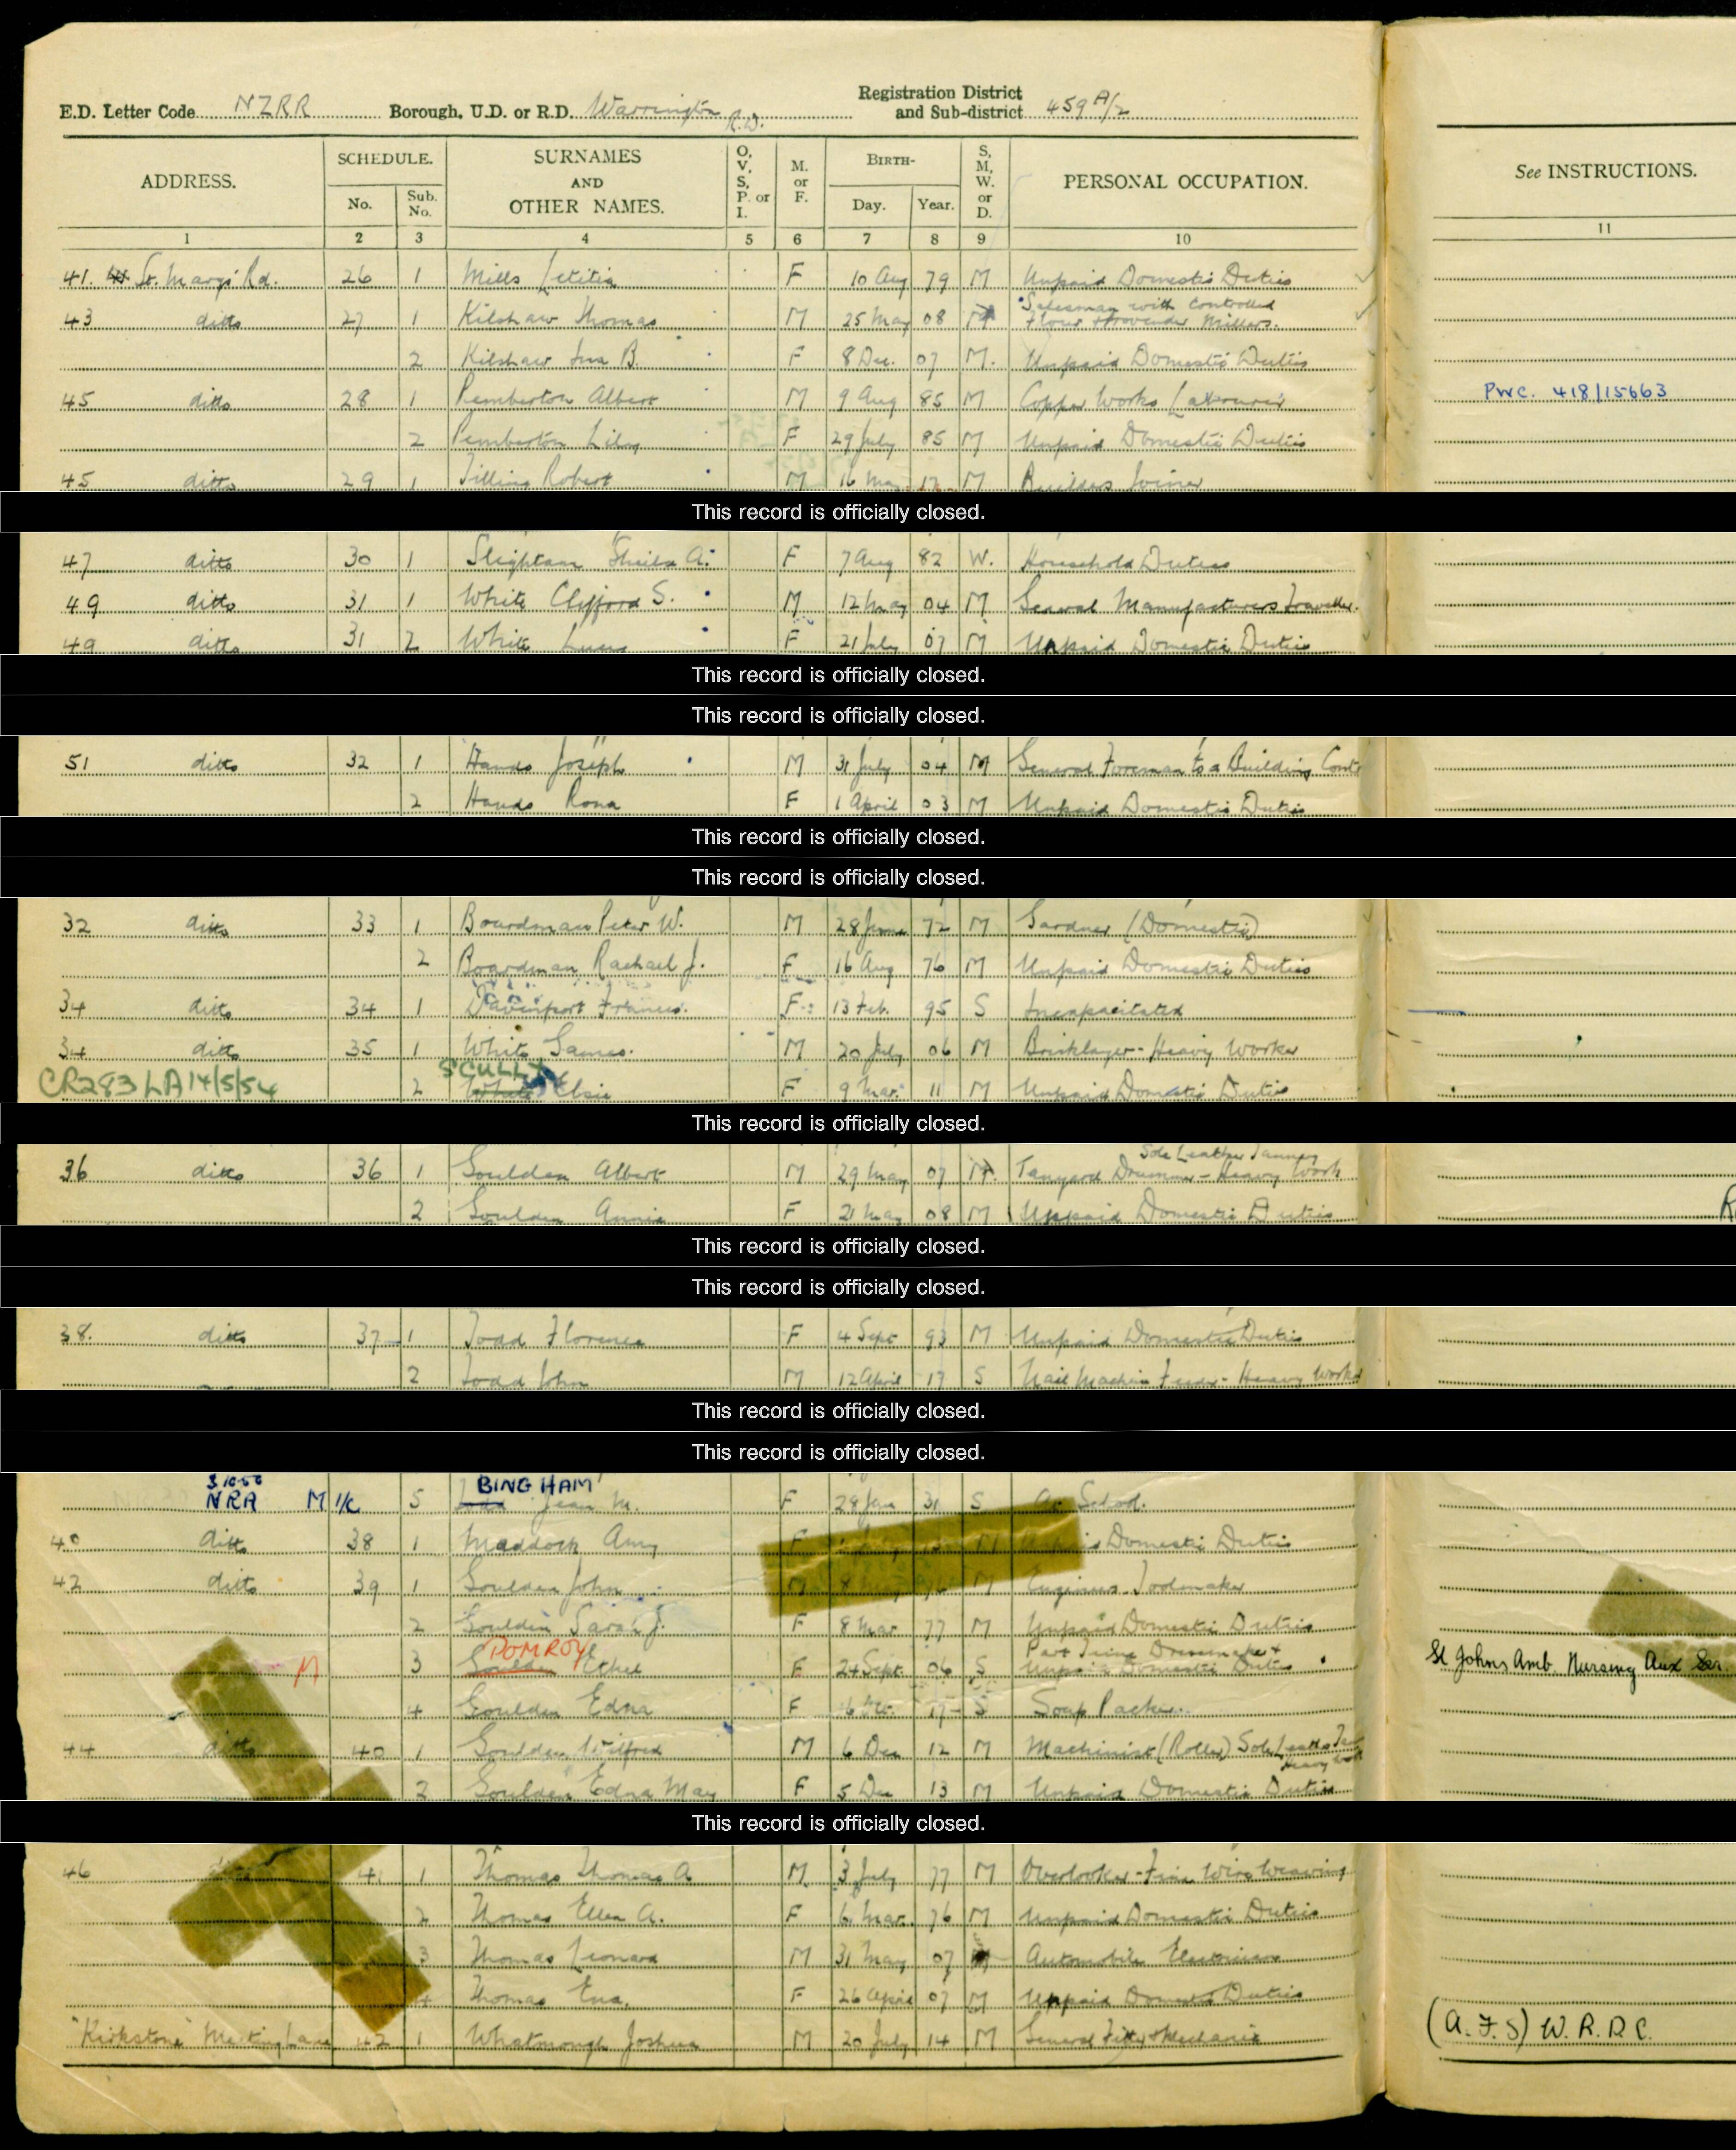 Registration District
E.D. Letter Code NZRR Borough, U.D. or R.D. Warrington R.D. and Sub-district 459 A/2
ADDRESS. SCHEDULE. No. Sub. No. SURNAMES AND OTHER NAMES. O, V, S, P. or I. M. or F. BIRTH- Day. Year. S, M, W. or D. PERSONAL OCCUPATION. See INSTRUCTIONS.
1 2 3 4 5 6 7 8 9 10 11
41. St. Mary's Rd. 26 1 Mills Letitia F 10 Aug 79 M Unpaid Domestic Duties
Salesman with Controlled
43 ditto 27 1 Kilshaw Thomas M 25 May 08 M Flour & Provender Millers.
2 Kilshaw Ina B. F 8 Dec. 07 M. Unpaid Domestic Duties
45 ditto 28 1 Pemberton Albert M 9 Aug 85 M Copper Works Labourer PWC. 418/15663
2 Pemberton Lily F 29 July 85 M Unpaid Domestic Duties
45 ditto 29 1 Tilling Robert M 16 May 12 M Builders Joiner
This record is officially closed.
47 ditto 30 1 Sheila A. F 7 Aug 82 W. Household Duties
49 ditto 31 1 White Clifford S. M 12 May 04 M General Manufacturers Traveller.
49 ditto 31 2 White F 21 July 07 M Unpaid Domestic Duties
This record is officially closed.
This record is officially closed.
51 ditto 32 1 Hands Joseph M 31 July 04 M General Foreman to a Building Contr
2 Hands Rona F 1 April 03 M Unpaid Domestic Duties
This record is officially closed.
This record is officially closed.
32 ditto 33 1 Boardman Peter W. M 28 June 72 M Gardner (Domestic)
2 Boardman Rachael J. F 16 Aug 76 M Unpaid Domestic Duties
34 ditto 34 1 Davenport Frances. F 13 Feb. 95 S Incapacitated
34 ditto 35 1 White James. M 20 July 06 M Bricklayer - Heavy Worker
SCULLY
CR283 LA 14/5/54 2 White Elsie F 9 Mar. 11 M Unpaid Domestic Duties
This record is officially closed.
Sole Leather Tannery
36 ditto 36 1 Goulden Albert M 29 May 07 M. Tanyard Drummer - Heavy Work
2 Goulden Annie F 21 May 08 M Unpaid Domestic Duties
This record is officially closed.
This record is officially closed.
38. ditto 37 1 Todd Florence F 4 Sept 93 M Unpaid Domestic Duties
2 Todd John M 12 April 17 S Nail Machine Feeder - Heavy Work
This record is officially closed.
This record is officially closed.
3.10.50 BINGHAM
NRA M 1/c 5 Todd Jean M. F 28 Jan 31 S At School.
40 ditto 38 1 Maddock Amy F M Domestic Duties
42 ditto 39 1 Goulden John M M Engineers Toolmaker
2 Goulden Sarah J. F 8 Mar 77 M Unpaid Domestic Duties
POMROY Part Time Dressmaker +
M 3 Goulden Ethel F 24 Sept. 06 S Unpaid Domestic Duties St Johns Amb. Nursing Aux Ser.
4 Goulden Edna F 17 S Soap Packer.
44 ditto 40 1 Goulden Wilfred M 6 Dec 12 M Machinist (Roller) Sole Leather Tan
Heavy Work
2 Goulden Edna May F 5 Dec 13 M Unpaid Domestic Duties
This record is officially closed.
46 41 1 Thomas Thomas A M 3 July 77 M Overlooker - Fine Wire Weaving
2 Thomas Ellen A. F 6 Mar. 76 M Unpaid Domestic Duties
3 Thomas Leonard M 31 May 07 Automobile Electrician
4 Thomas Ena. F 26 April 07 M Unpaid Domestic Duties
"Kirkstone" Meeting Lane 42 1 Whatmough Joshua M 20 July 14 M General Fitter & Mechanic (A.F.S) W.R.D.C.